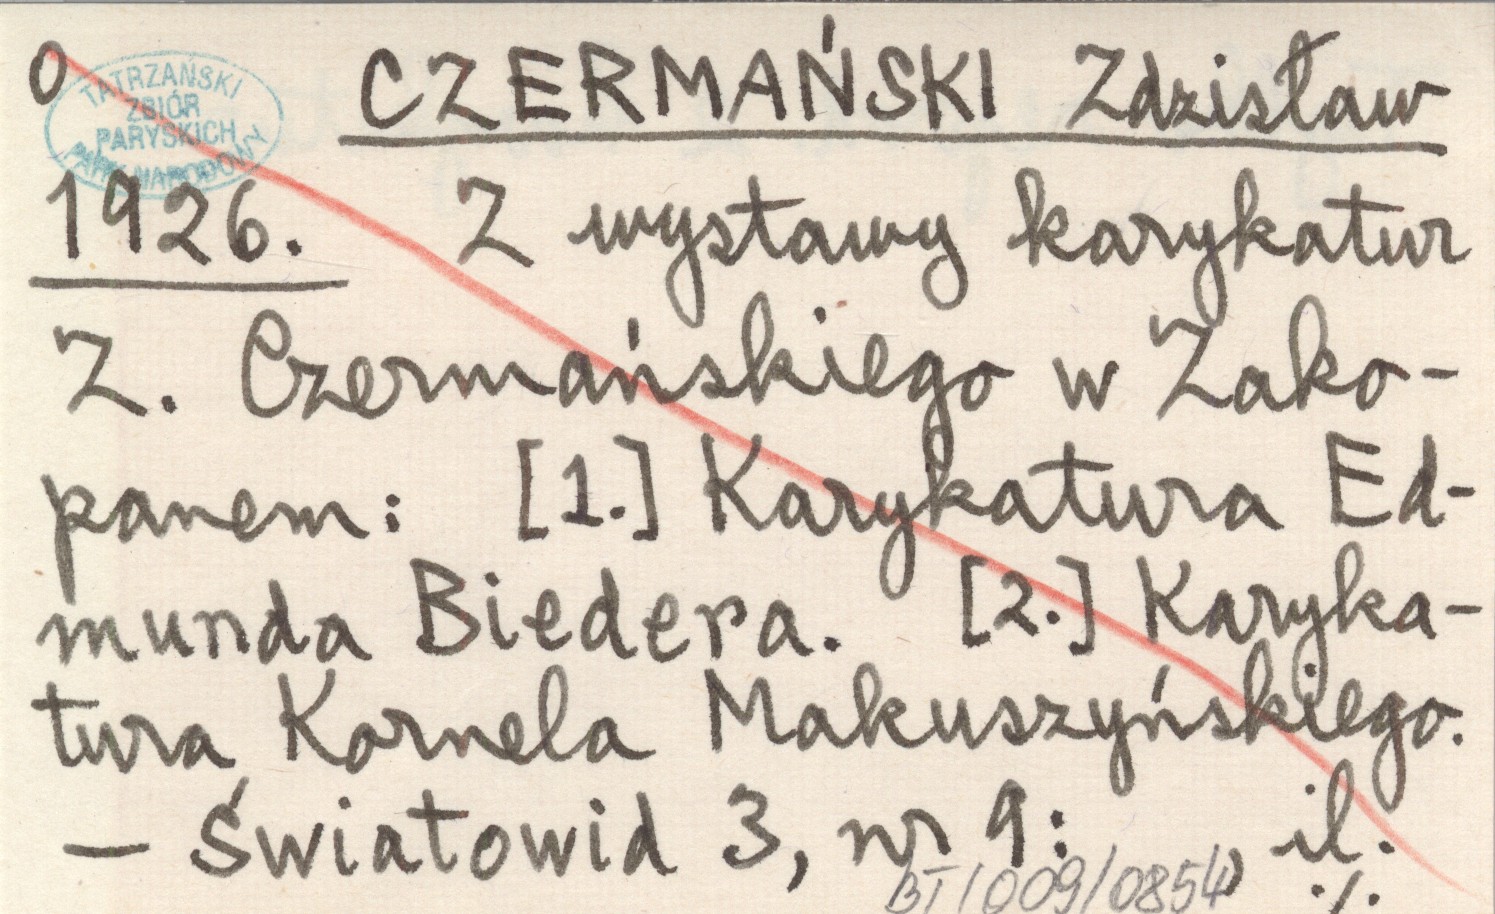 O CZERMAŃSKI Zdzisław
TATRZAŃSKI
ZBIÓR
PARYSKICH
PARK NARODOWY
1926. Z wystawy karykatur
Z. Czermańskiego w Zako-
panem: [1.] Karykatura Ed-
munda Biedera. [2.] Karyka-
tura Kornela Makuszyńskiego.
— Światowid 3, nr 9: , il.
BT/009/0854 ./.